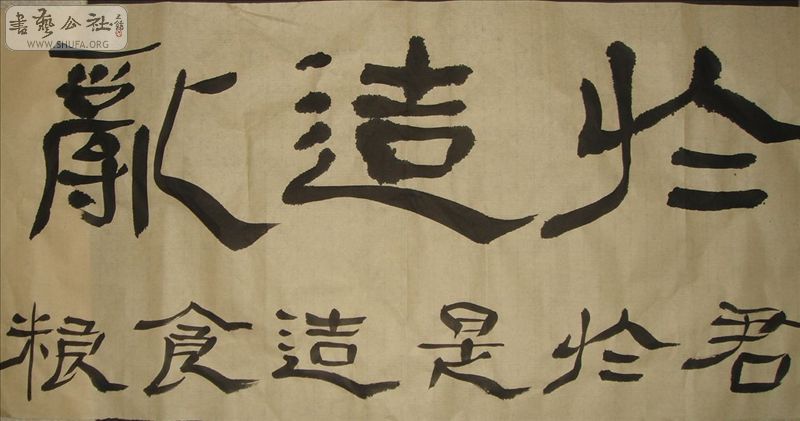 書藝公社
WWW.SHUFA.ORG
於造獻
君於是造食粮